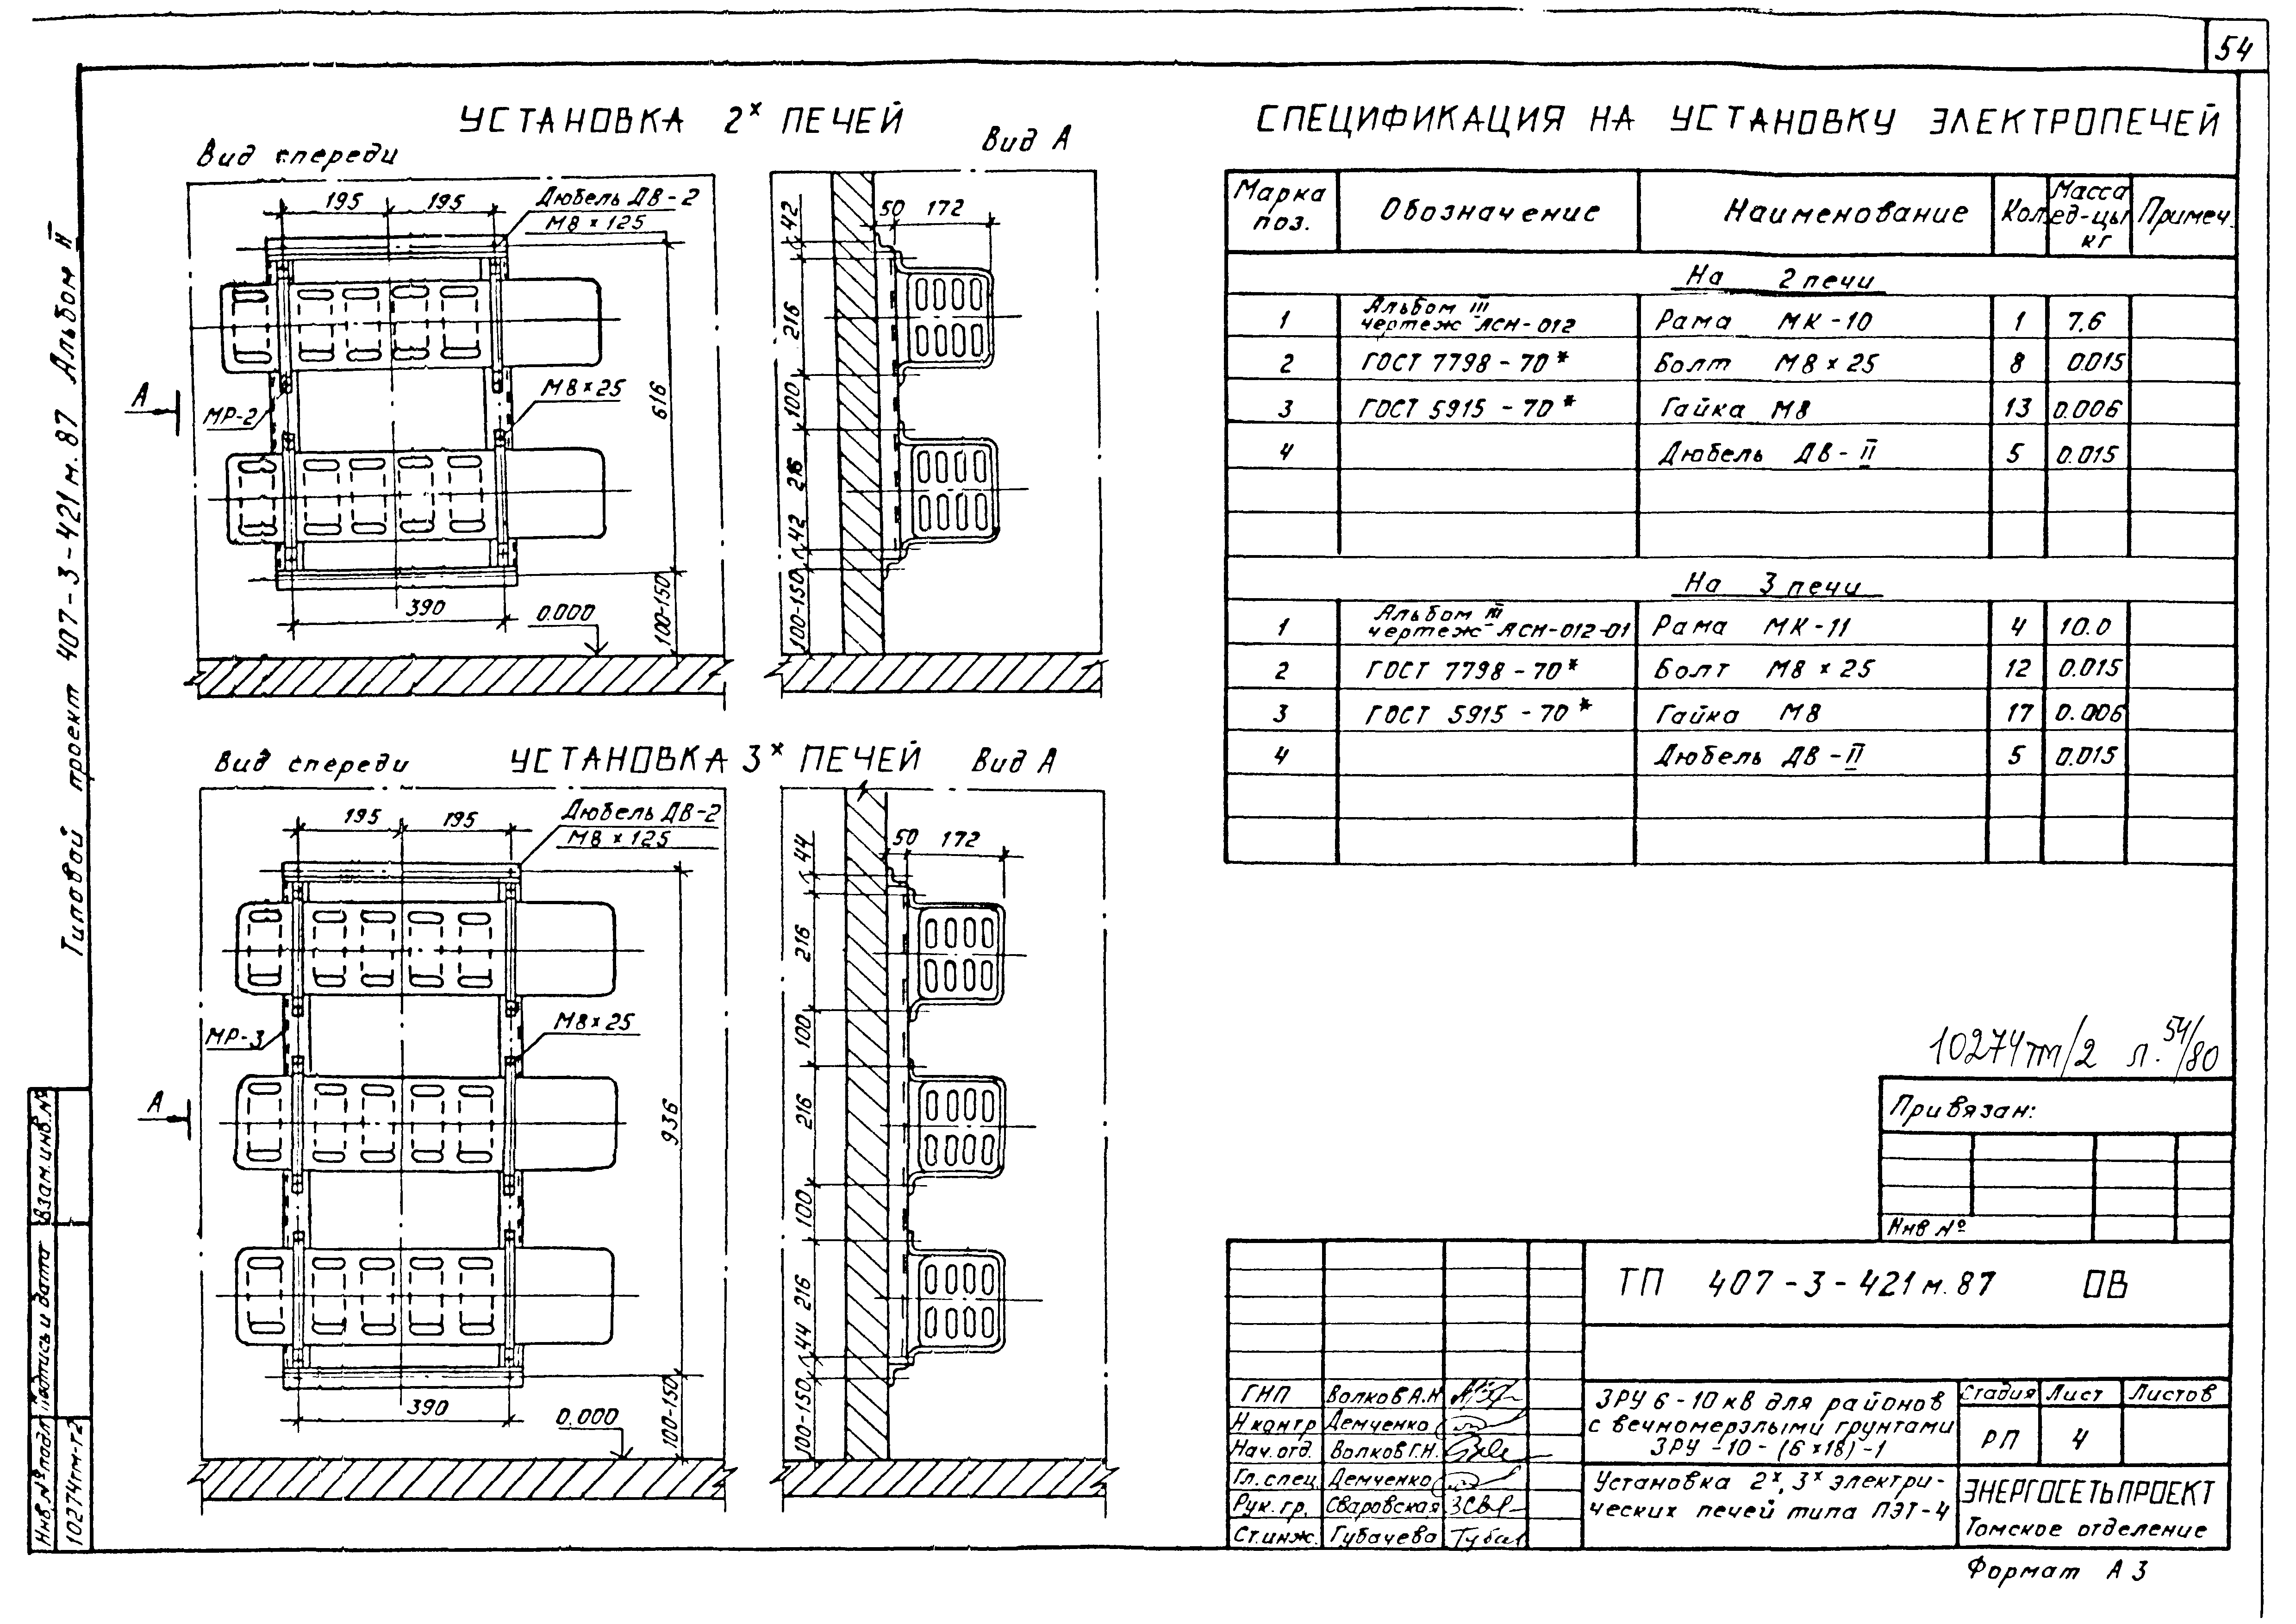 54
Типовой проект 407-3-421м.87 Альбом II
УСТАНОВКА 2ˣ ПЕЧЕЙ
Вид спереди
Вид А
195 195
Дюбель ДВ-2
М8×125
МР-2
М8×25
А
616
390
0.000
100-150
50 172
42
216
100
216
42
100-150
УСТАНОВКА 3ˣ ПЕЧЕЙ
Вид спереди
Вид А
195 195
Дюбель ДВ-2
М8×125
МР-3
М8×25
А
936
390
0.000
100-150
50 172
44
216
100
216
100
216
44
100-150
СПЕЦИФИКАЦИЯ НА УСТАНОВКУ ЭЛЕКТРОПЕЧЕЙ
Марка поз. Обозначение Наименование Кол. Масса ед-цы кг Примеч.
На 2 печи
1 Альбом III чертеж АСИ-012 Рама МК-10 1 7,6
2 ГОСТ 7798-70* Болт М8×25 8 0.015
3 ГОСТ 5915-70* Гайка М8 13 0.006
4 Дюбель ДВ-II 5 0.015
На 3 печи
1 Альбом III чертеж АСИ-012-01 Рама МК-11 4 10.0
2 ГОСТ 7798-70* Болт М8×25 12 0.015
3 ГОСТ 5915-70* Гайка М8 17 0.006
4 Дюбель ДВ-II 5 0.015
10274тм/2 л. 54/80
Привязан:
Инв №
ТП 407-3-421м.87 ОВ
ГИП Волков А.Н
Н контр Демченко
Нач. отд. Волков Г.Н.
Гл. спец. Демченко
Рук. гр. Сваровская
Ст. инж. Губачева
ЗРУ 6-10 кв для районов
с вечномерзлыми грунтами
ЗРУ-10-(6×18)-1
Стадия Лист Листов
РП 4
Установка 2ˣ, 3ˣ электри-
ческих печей типа ПЭТ-4
ЭНЕРГОСЕТЬПРОЕКТ
Томское отделение
Формат А3
Взам. инв. №
Подпись и дата
Инв № подл
10274тм-т2